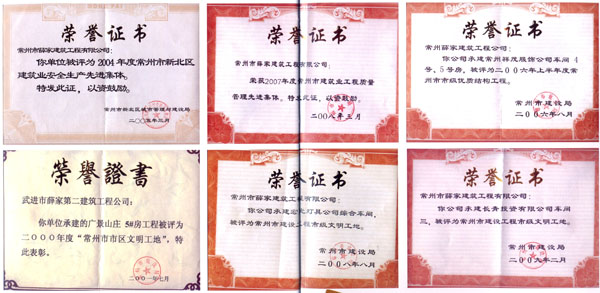 荣誉证书
常州市薛家建筑工程有限公司:
你单位被评为2004年度常州市新北区
建筑业安全生产先进集体。
特发此证，以资鼓励。
常州市新北区城市管理与建设局
二〇〇五年三月
荣誉证书
常州市薛家建筑工程有限公司:
荣获2007年度常州市建筑业工程质量
管理先进集体。特发此证，以资鼓励。
二〇〇八年三月
荣誉证书
常州市薛家建筑工程公司:
你公司承建常州祥茂服饰公司车间4
号、5号房，被评为二〇〇六年上半年度常
州市市级优质结构工程。
常州市建设局
二〇〇六年八月
荣譽證書
武进市薛家第二建筑工程公司:
你单位承建的广景山庄 5#房工程被评为
二〇〇〇年度“常州市市区文明工地”。特
此表彰。
二〇〇一年七月
荣誉证书
常州市薛家建筑工程有限公司:
你公司承建宏 灯具公司综合车间，
被评为常州市建设工程市级文明工地。
常州市建设局
二〇〇八年八月
荣誉证书
常州市薛家建筑工程有限公司:
你公司承建长青投资有限公司车间
三，被评为常州市建设工程市级文明工地。
常州市建设局
二〇〇九年二月